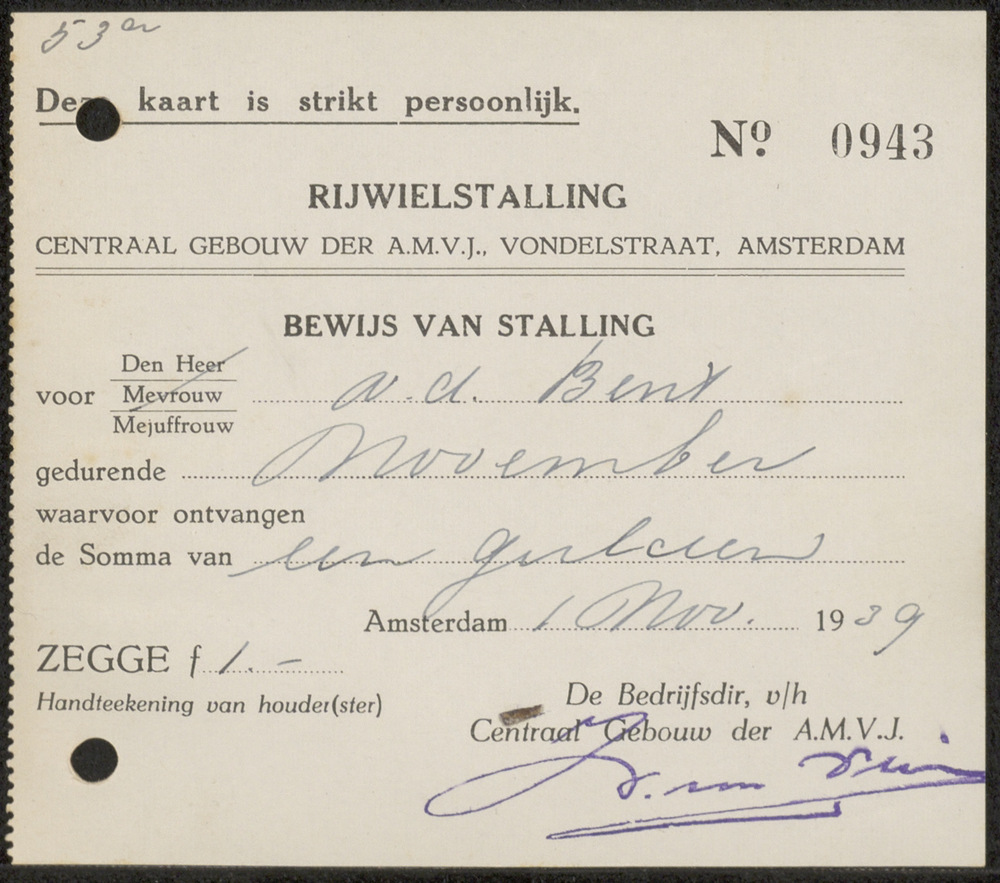 53 a
Deze kaart is strikt persoonlijk.
Nº 0943
RIJWIELSTALLING
CENTRAAL GEBOUW DER A.M.V.J., VONDELSTRAAT, AMSTERDAM
BEWIJS VAN STALLING
Den Heer
voor Mevrouw v.d. Bent
Mejuffrouw
gedurende November
waarvoor ontvangen
de Somma van een gulden
Amsterdam 1 Nov. 1939
ZEGGE f 1.-
Handteekening van houder(ster)
De Bedrijfsdir, v/h
Centraal Gebouw der A.M.V.J.